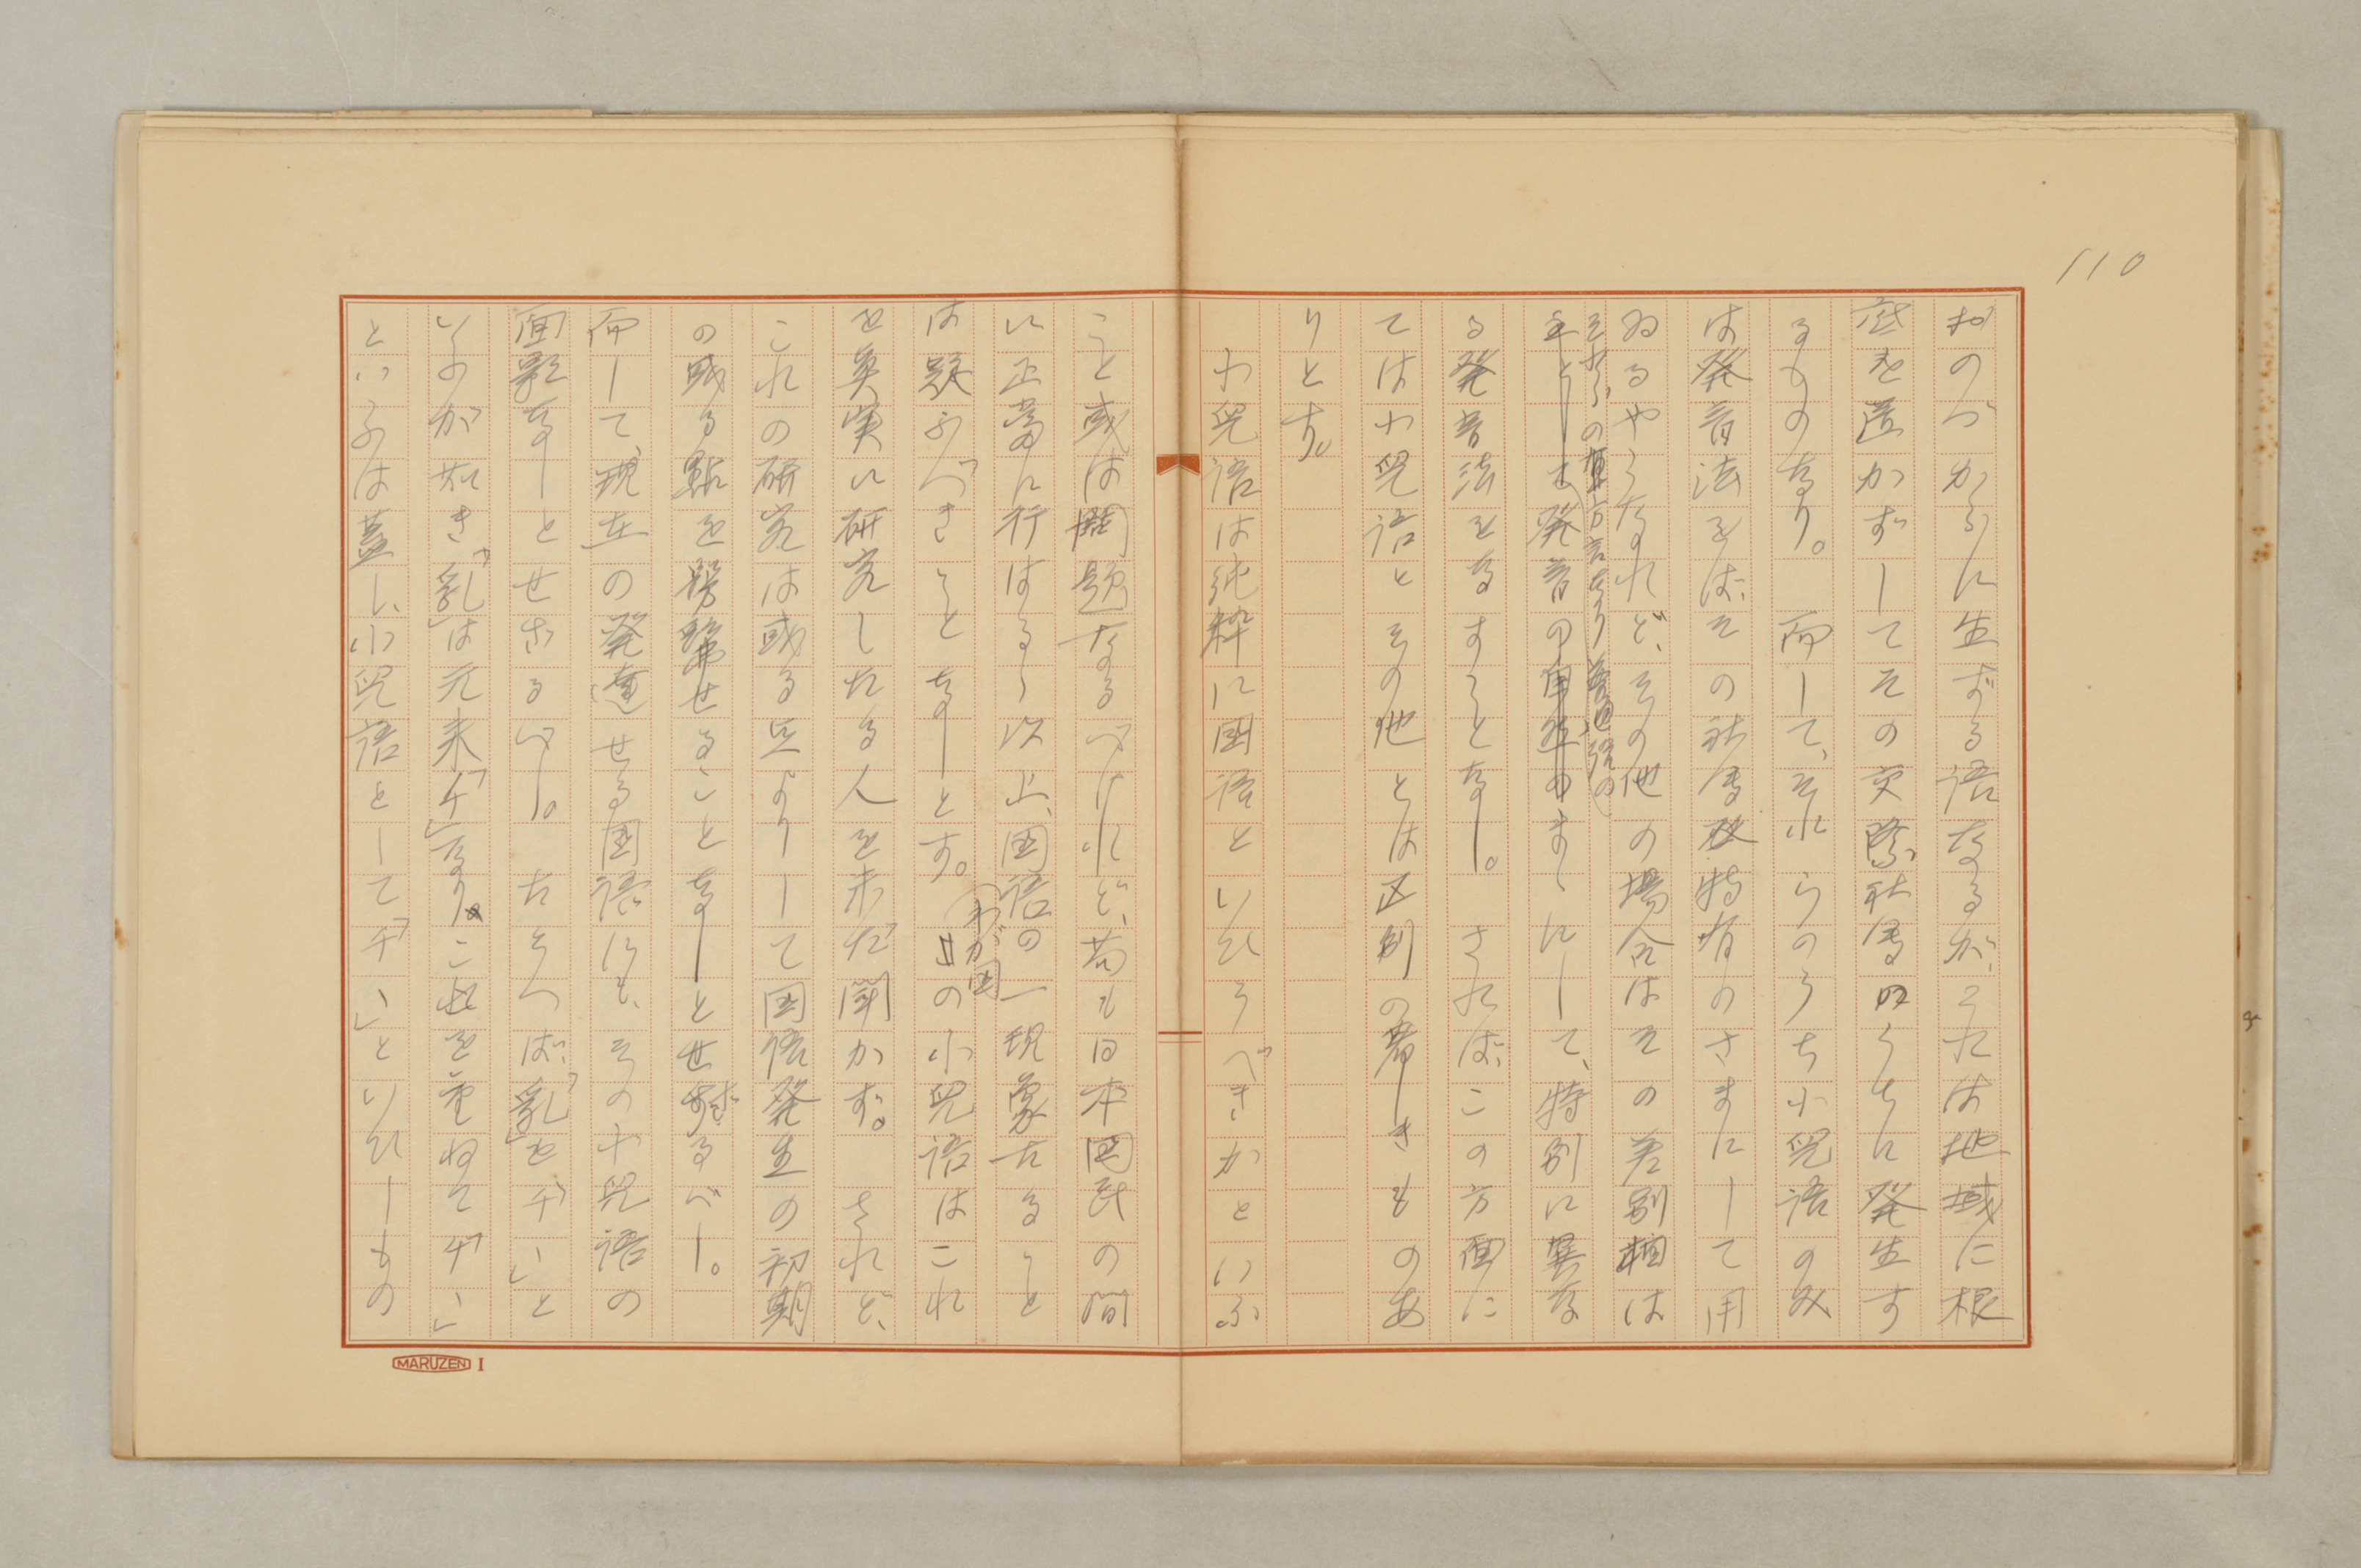 110
おのづからに生ずる語なるが、これは地域に根
底を置かずしてその交際社会のうちに発生す
るものなり。而して、それらのうち小児語のみ
は発音法をば、その社会特有のさまにして用
ゐるやうなれど、その他の場合はその差別相は
それらの方言なり普通語の
主として発音のまゝにして、特別に異な
る発音法をなすことなし。されば、この方面に
ては小児語とその他とは区別の著しきものあ
りとす。
小児語は純粋に国語といひうべきかといふ
こと或は問題なるべけれど、苟も日本国民の間
に正常に行はるゝ以上、国語の一現象たること
は疑ふべきことなしとす。
わが国
の小児語はこれ
を真実に研究したる人を未だ聞かず。されど、
これの研究は或る点よりして国語発生の初期
の或る点を髣髴せることなしとせざるべし。
而して、現在の発達せる国語にも、その小児語の
面影なしとせざるべし。たとへば、「乳」を「チヽ」と
いふが如き「乳」は元来「チ」なり。これを重ねて「チヽ」
といふは蓋し、小児語として「チヽ」といひしもの
MARUZEN I